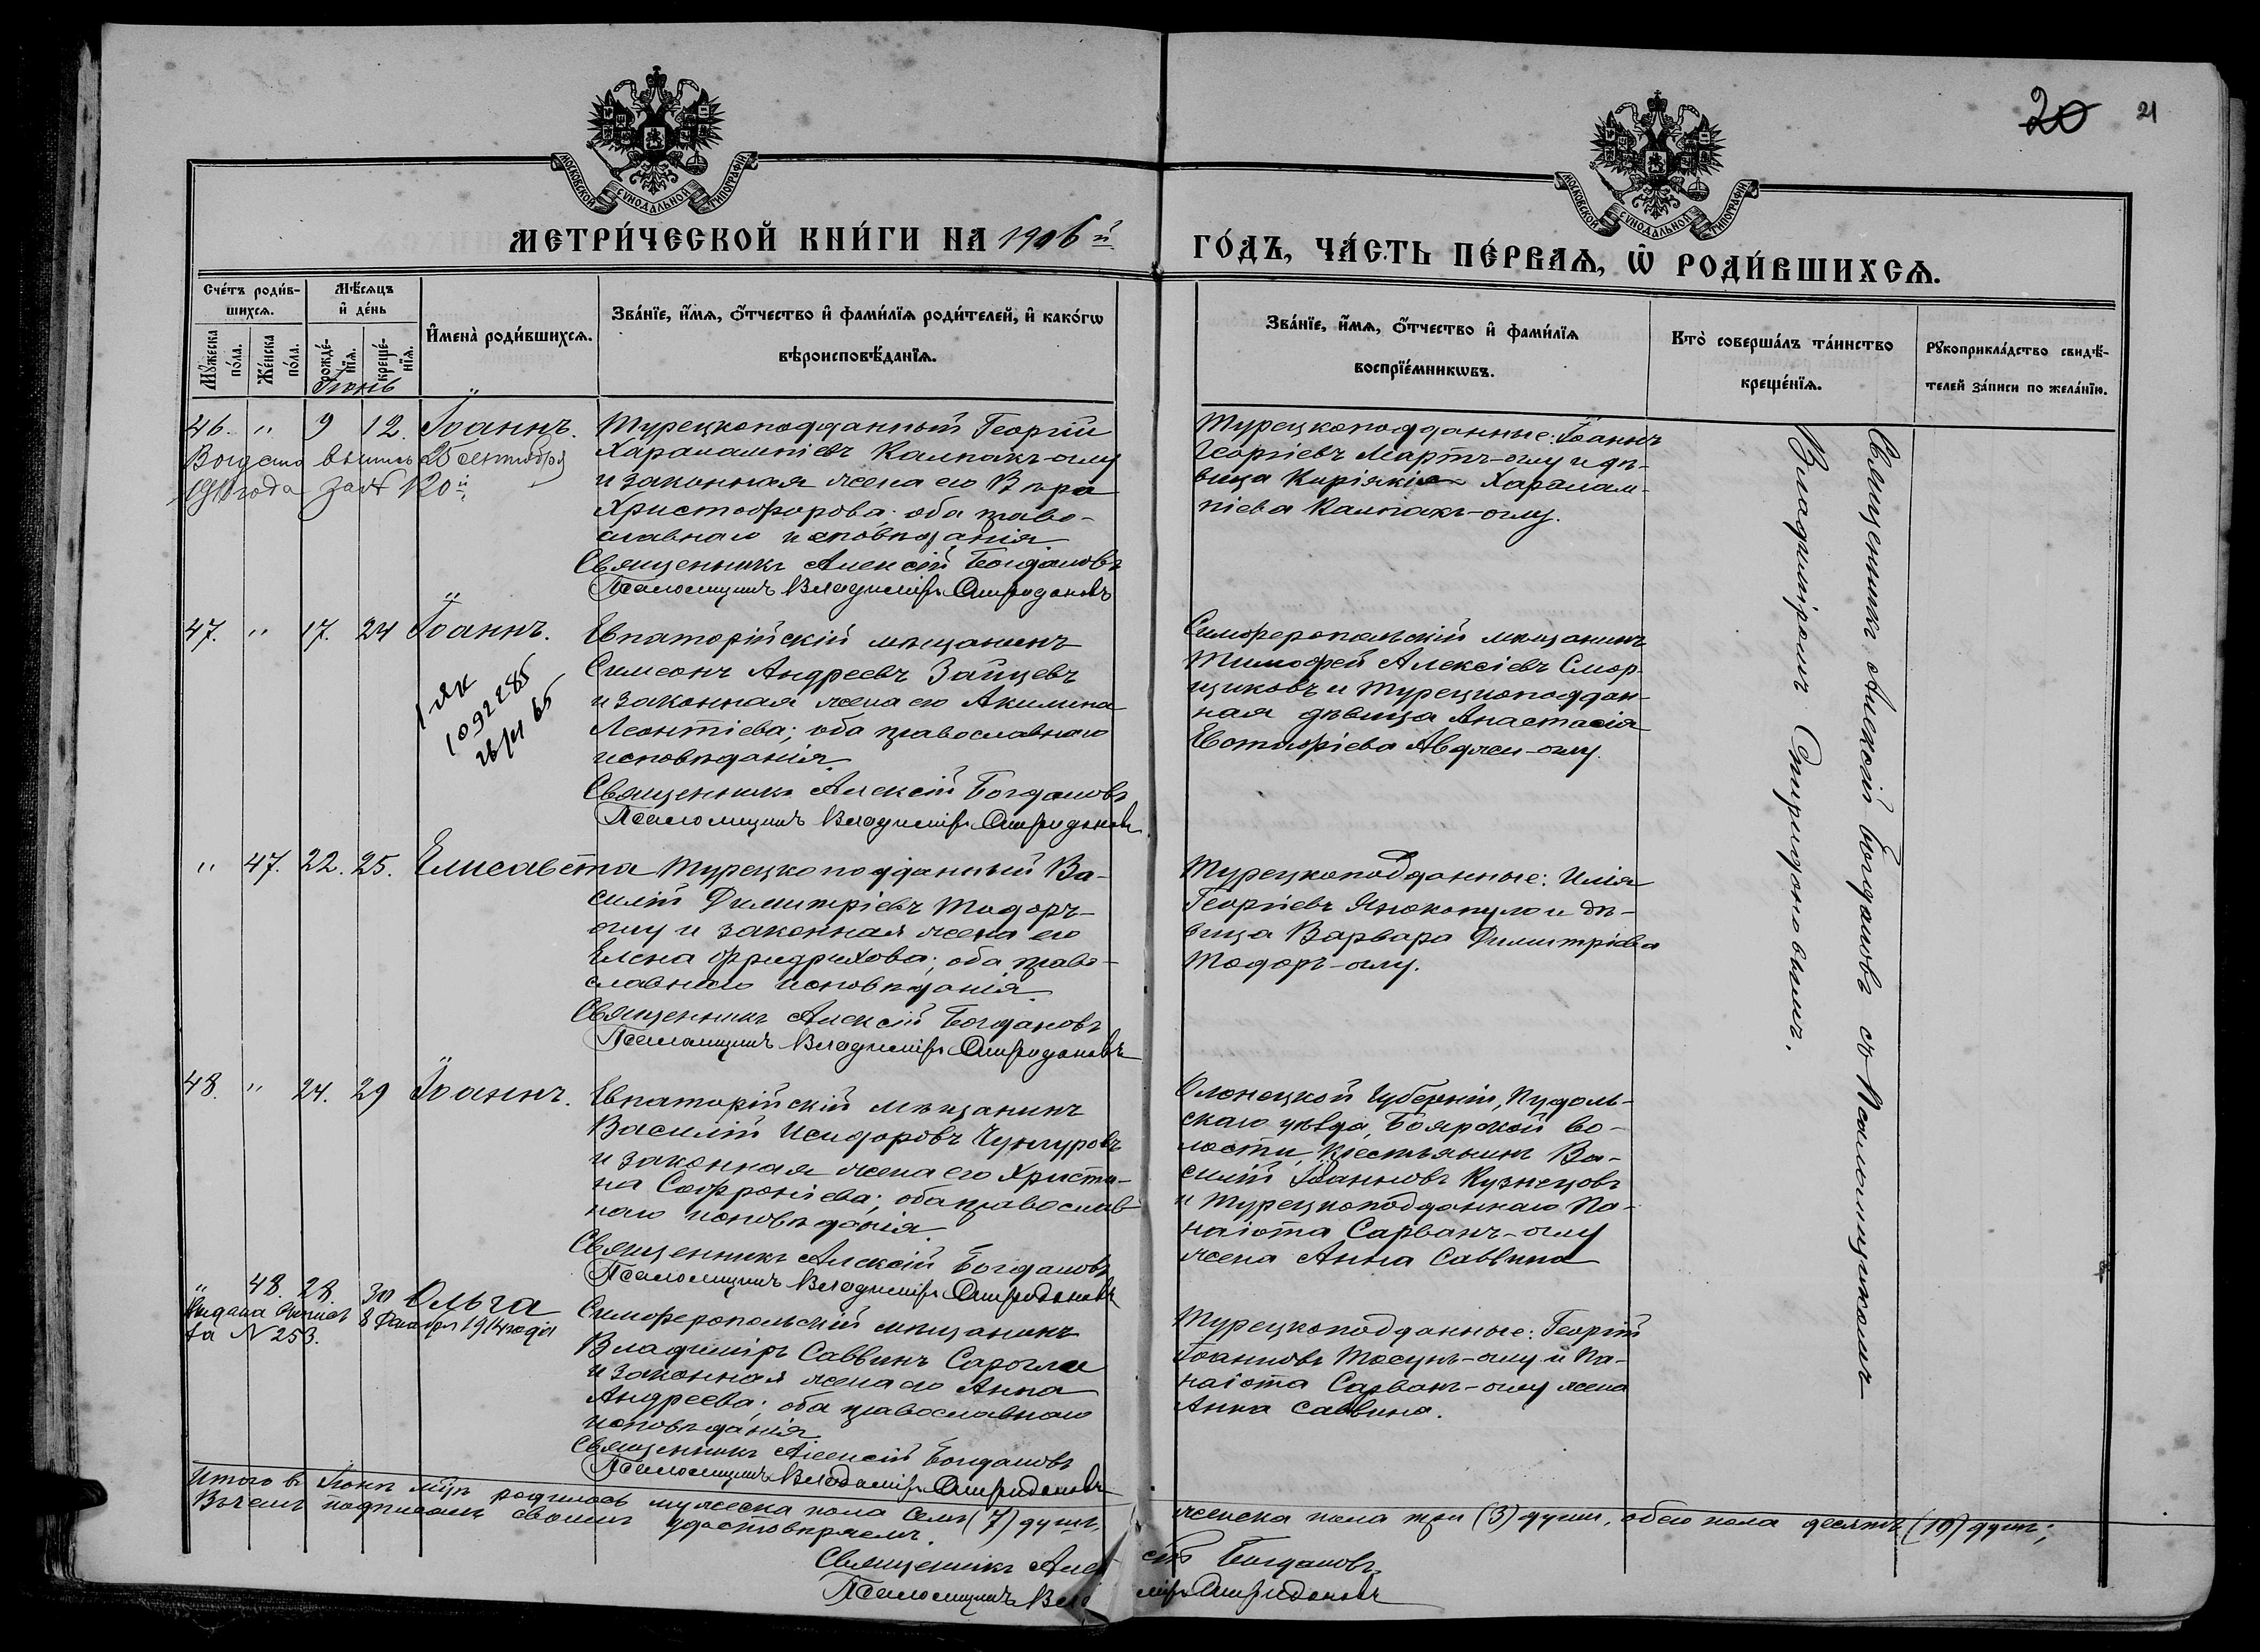 20 21
МОСКОВСКОЙ СѴНОДАЛЬНОЙ ТИПОГРАФІИ
МОСКОВСКОЙ СѴНОДАЛЬНОЙ ТИПОГРАФІИ
МЕТРИ́ЧЕСКОЙ КНИ́ГИ НА 1906й
ГО́ДЪ, ЧА́СТЬ ПЕ́РВАѦ, Ѡ РОДИ́ВШИХСѦ.
Сче́тъ роди́в-
шихсѧ.
Мꙋ́жеска
по́ла.
Же́нска
по́ла.
Мѣ́сѧцъ
и҆ де́нь
рожде́-
нїѧ.
креще́-
нїѧ.
И҆мена̀ роди́вшихсѧ.
Зва́нїе, и҆́мѧ, ѻ҆́тчество и҆ фами́лїѧ роди́телей, и҆ како́гѡ
вѣроисповѣ́данїѧ.
Зва́нїе, и҆́мѧ, ѻ҆́тчество и҆ фами́лїѧ
воспрїе́мникѡвъ.
Кто̀ соверша́лъ та́инство
креще́нїѧ.
Рꙋкоприкла́дство свидѣ́-
телей за́писи по жела́нїю.
Іюнь
46. " 9 12. Іоаннъ.
Турецкоподданный Георгій
Харалампіевъ Калпакъ-оглу
и законная жена его Вѣра
Христофорова; оба право-
славнаго исповѣданія.
Священникъ Алексій Богдановъ
Псаломщикъ Владиміръ Спиридоновъ
Выдана выпись 25 сентября
года за № 120й
Турецкоподданные: Іоаннъ
Георгіевъ Мартъ-оглу и дѣ-
вица Киріакія Харалам-
піева Калпакъ-оглу.
47. " 17. 24 Іоаннъ.
Евпаторійскій мѣщанинъ
Симеонъ Андреевъ Зайцевъ
и законная жена его Акилина
Леонтіева; оба православнаго
исповѣданія.
Священникъ Алексій Богдановъ
Псаломщикъ Владиміръ Спиридоновъ
1092285
Симферопольскій мѣщанинъ
Тимофей Алексіевъ Смор-
щиковъ и турецкоподдан-
ная дѣвица Анастасія
" 47. 22. 25. Елисавета
Турецкоподданный Ва-
силій Димитріевъ Тодоръ-
оглу и законная жена его
Елена Фридрихова; оба право-
славнаго исповѣданія.
Священникъ Алексій Богдановъ
Псаломщикъ Владиміръ Спиридоновъ
Турецкоподданные: Илія
Георгіевъ Янокопуло и дѣ-
вица Варвара Димитріева
Тодоръ-оглу.
48. " 24. 29 Іоаннъ.
Евпаторійскій мѣщанинъ
Василій Исидоровъ Чунгуровъ
и законная жена его Христи-
на Софроніева; оба православ-
наго исповѣданія.
Священникъ Алексій Богдановъ
Псаломщикъ Владиміръ Спиридоновъ
Олонецкой Губерніи, Пудож-
скаго уѣзда, Боярской во-
лости, Крестьянинъ Ва-
силій Іоанновъ Кузнецовъ
и турецкоподданнаго Па-
наіота Сарванъ-оглу
жена Анна Саввина
" 48. 28. 30 Ольга
Выдана выпись 8 1914 года
за № 253.
Симферопольскій мѣщанинъ
Владиміръ Саввинъ Сарогли
и законная жена его Анна
Андреева; оба православнаго
исповѣданія.
Священникъ Алексій Богдановъ
Псаломщикъ Владиміръ Спиридоновъ
Турецкоподданные: Георгій
Іоанновъ Тосунъ-оглу и Па-
наіота Сарванъ-оглу жена
Анна Саввина.
Священникъ Алексій Богдановъ съ Псаломщикомъ
Владиміромъ Спиридоновымъ.
Итого въ Іюнѣ м-цѣ родилось мужеска пола семь (7) душъ, женска пола три (3) души, обоего пола десять (10) душъ;
Въ чемъ подписомъ своимъ удостовѣряемъ.
Священникъ Алексій Богдановъ
Псаломщикъ Владиміръ Спиридоновъ